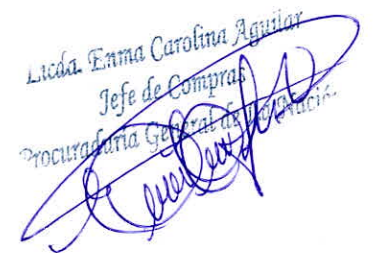 Licda. Enma Carolina Aguilar
Jefe de Compras
Procuraduria General de la Nación